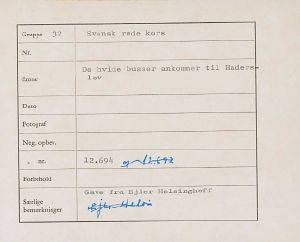 Gruppe 32 Svensk røde kors
Nr.
Emne De hvide busser ankommer til Haders-
lev
Dato
Fotograf
Neg. opbev.
" nr. 12.694 og 12.692
Forbehold
Særlige
bemærkninger
Gave fra Ejler Helsinghoff